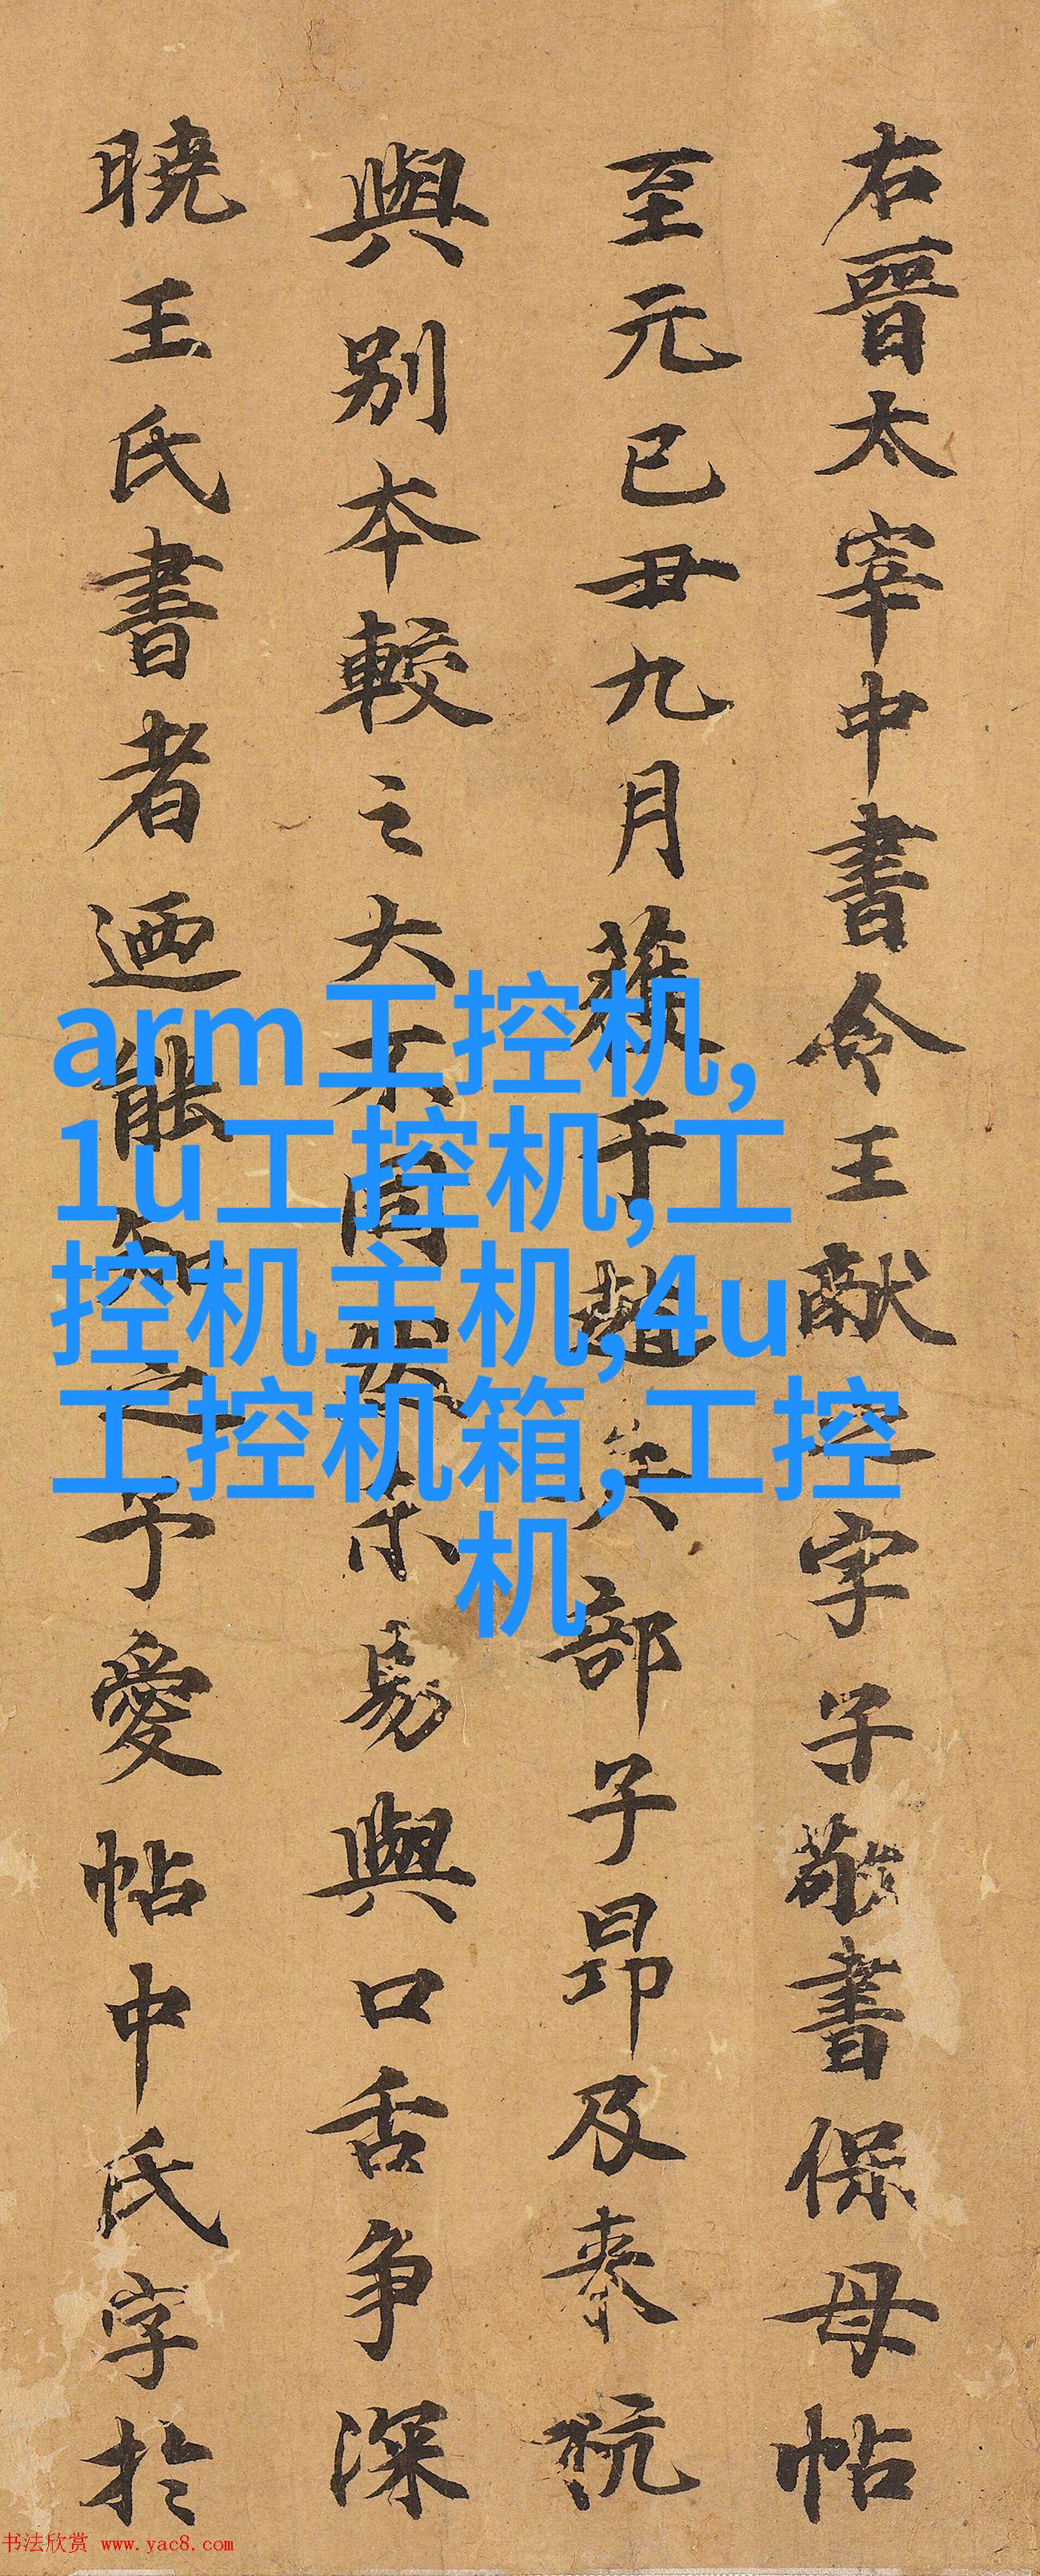 右晉太宰中書令王獻之字子敬書保母帖
至元己丑九月獲于趙兵部子昂及來杭
與别本較之大不同矣未易與口舌争深
曉王氏書者迺能知之予愛帖中氏字於
arm工控机,
1u工控机,工
控机主机,4u
工控机箱,工控
机
书法欣赏 www.yac8.com